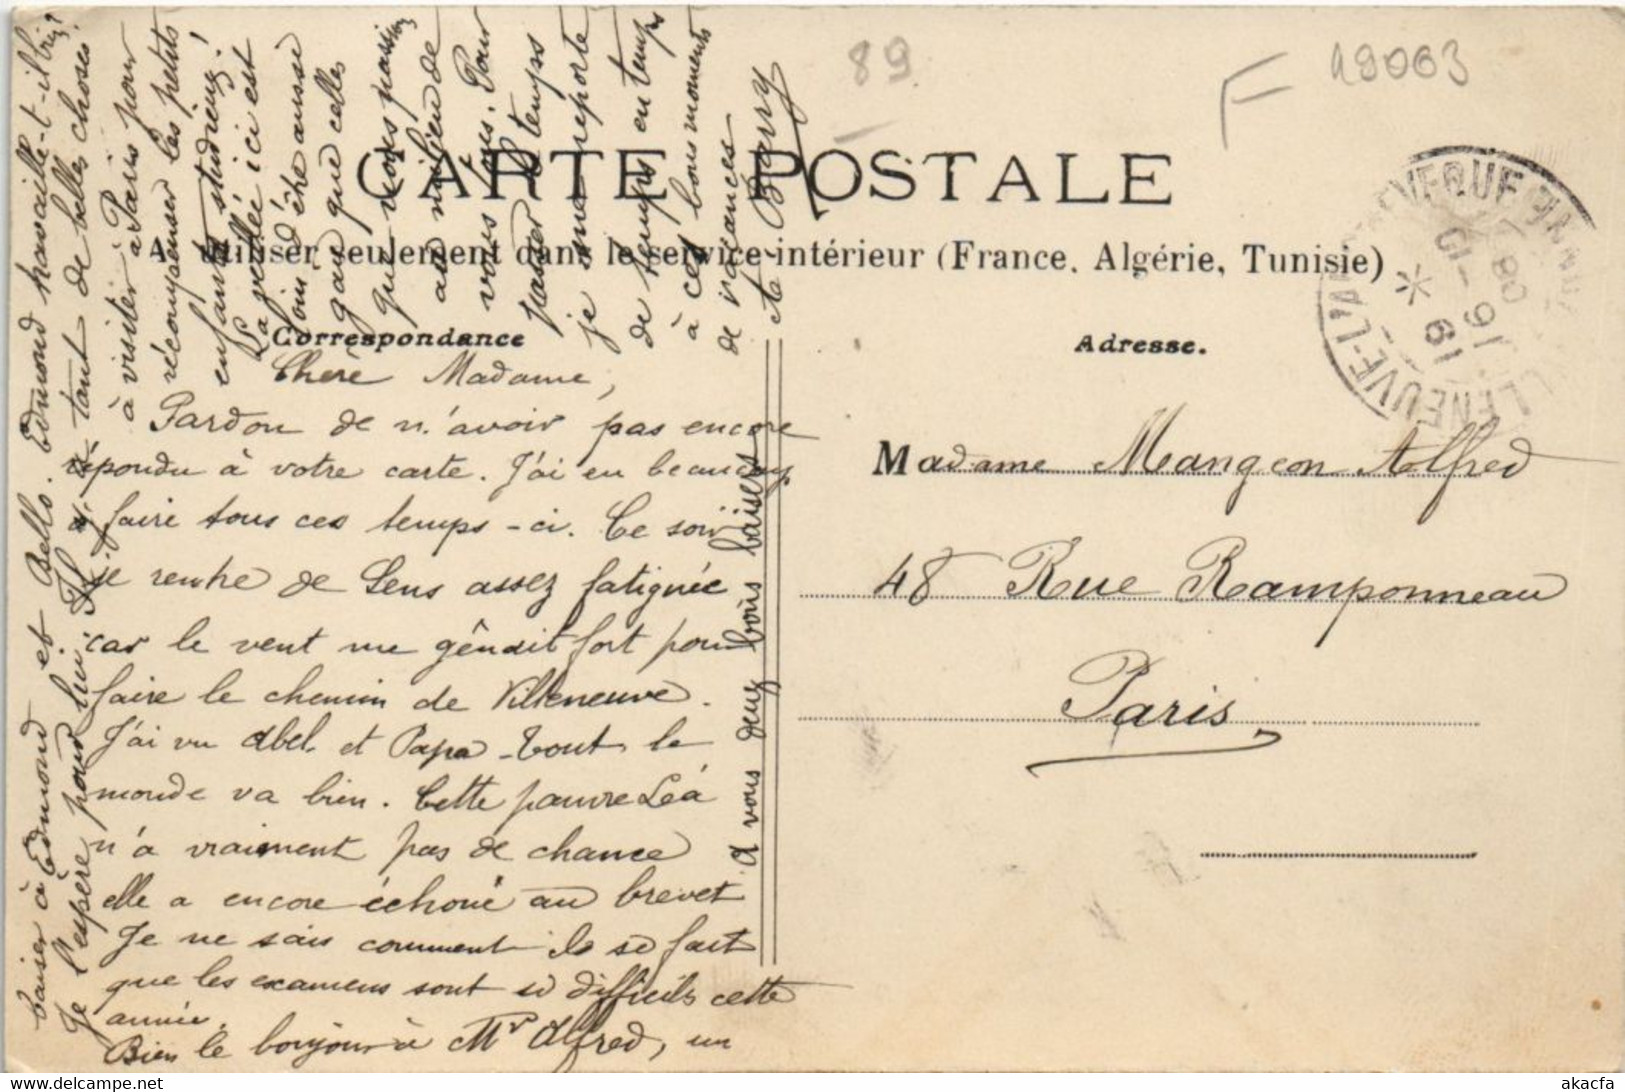 89
F
19003
CARTE POSTALE
A utiliser seulement dans le service intérieur (France, Algérie, Tunisie)
Correspondance
Adresse.
Chère Madame,
Pardon de n'avoir pas encore
répondu à votre carte. J'ai eu beaucoup
à faire tous ces temps-ci. Ce soir
je rentre de Sens assez fatiguée
car le vent me gênait fort pour
faire le chemin de Villeneuve.
J'ai vu Abel et Papa - Tout le
monde va bien. Cette pauvre Léa
n'a vraiment pas de chance
elle a encore échoué au brevet
Je ne sais comment il se fait
que les examens sont si difficils cette
année.
Bien le bonjour à Mr Alfred, un
baiser à Edmond et Bello. Edmond travaille-t-il bien?
Je l'espère pour lui. Il y a tant de belles choses
à visiter à Paris pour
récompenser les petits
enfants studieux!
La veillée ici est
loin d'être aussi
gaie que celles
que nous passions
au milieu de
vous tous. Pour
passer le temps
je me reporte
de temps en temps
à ces bons moments
de vacances.
A. Barry
A vous deux bons baisers
Madame Mangeon Alfred
48 Rue Ramponneau
Paris
VILLENEUVE-L'ARCHEVEQUE
16 - 10
19
akacfa